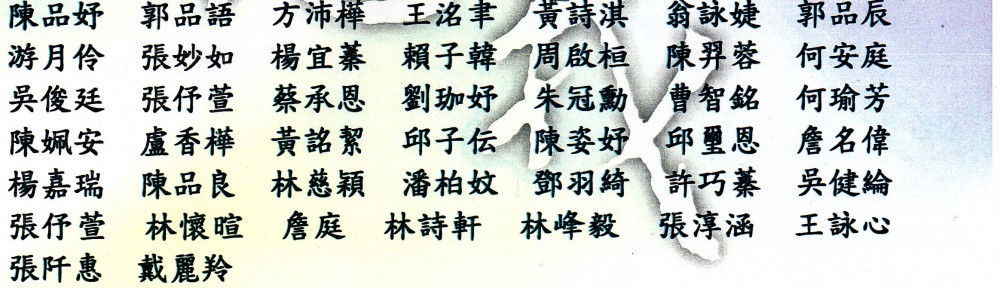 陳品妤 郭品語 方沛樺 王洺聿 黃詩淇 翁詠婕 郭品辰
游月伶 張妙如 楊宜蓁 賴子韓 周啟桓 陳羿蓉 何安庭
吳俊廷 張伃萱 蔡承恩 劉珈妤 朱冠勳 曹智銘 何瑜芳
陳姵安 盧香樺 黃詺絜 邱子伝 陳姿妤 邱璽恩 詹名偉
楊嘉瑞 陳品良 林慈穎 潘柏妏 鄧羽綺 許巧蓁 吳健綸
張伃萱 林懷暄 詹庭 林詩軒 林峰毅 張淳涵 王詠心
張阡惠 戴麗羚